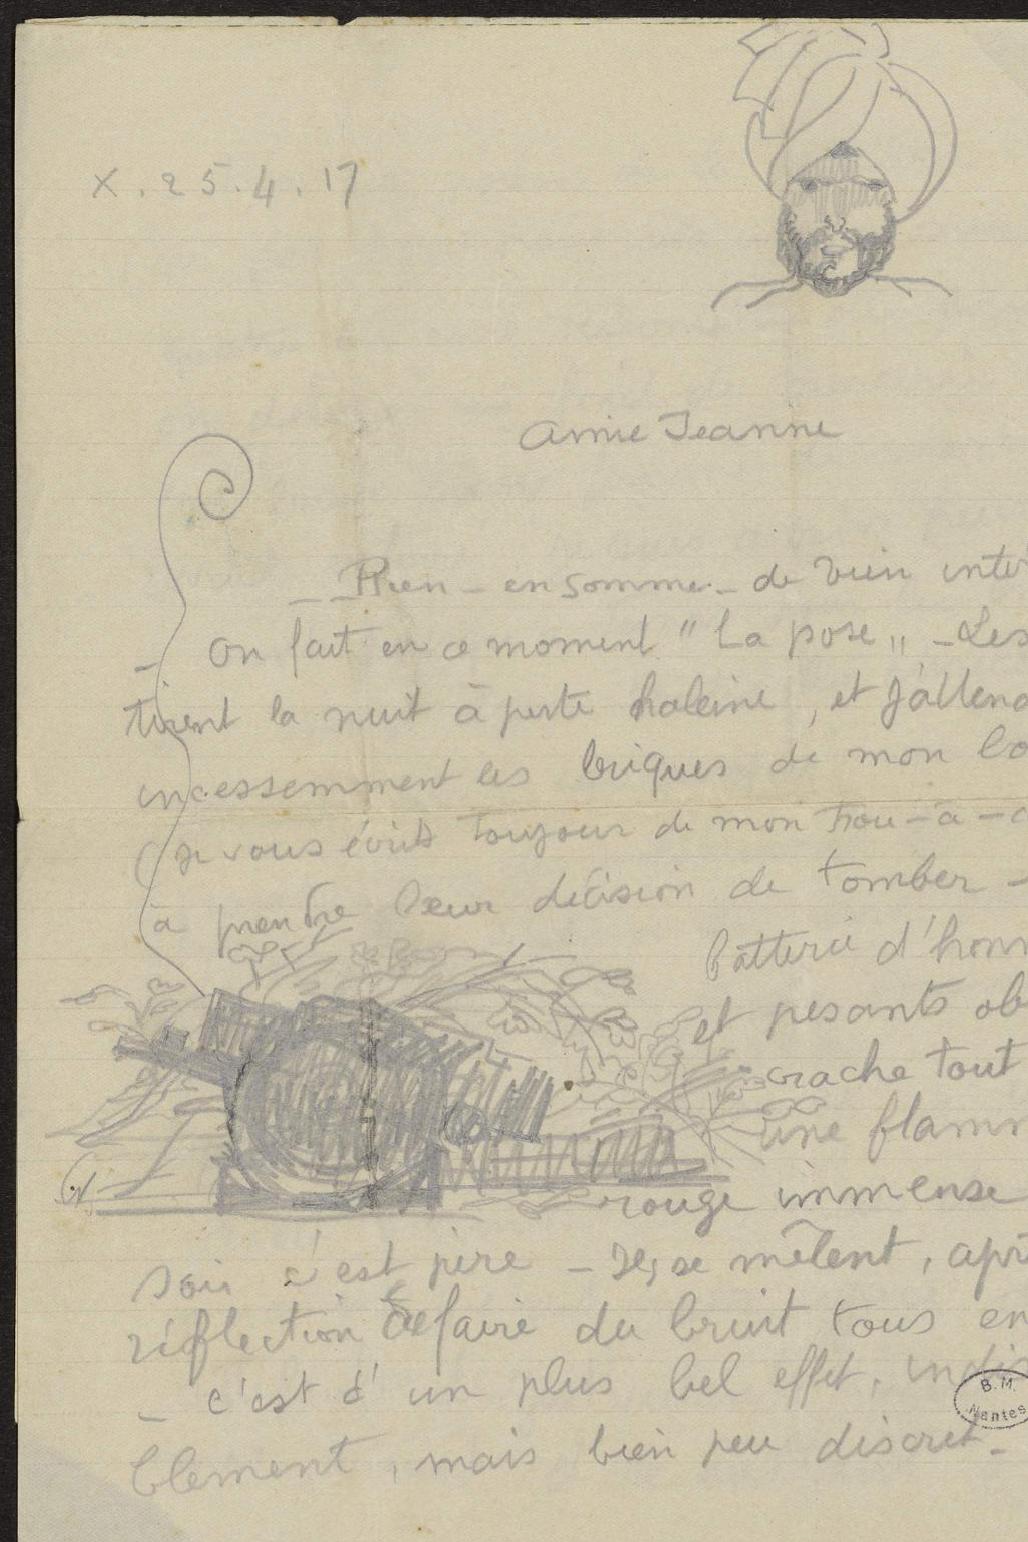 X. 25.4.17
Amie Jeanne
_ Rien - en somme - de bien inter
_ On fait en ce moment " la pose " - Les
tirent la nuit à perte haleine, et j'attend
incessemment les briques de mon
(je vous écrit toujour de mon trou-à-
à prendre leur décision de tomber -
batterie d'hom
et pesants ob
crache tout
une flamm
rouge immense
soir c'est pire - Ils se mêlent, apr
réflection de faire du bruit tous en
_ c'est d'un plus bel effet, indis
blement, mais bien peu discret -
B.M.
Nantes